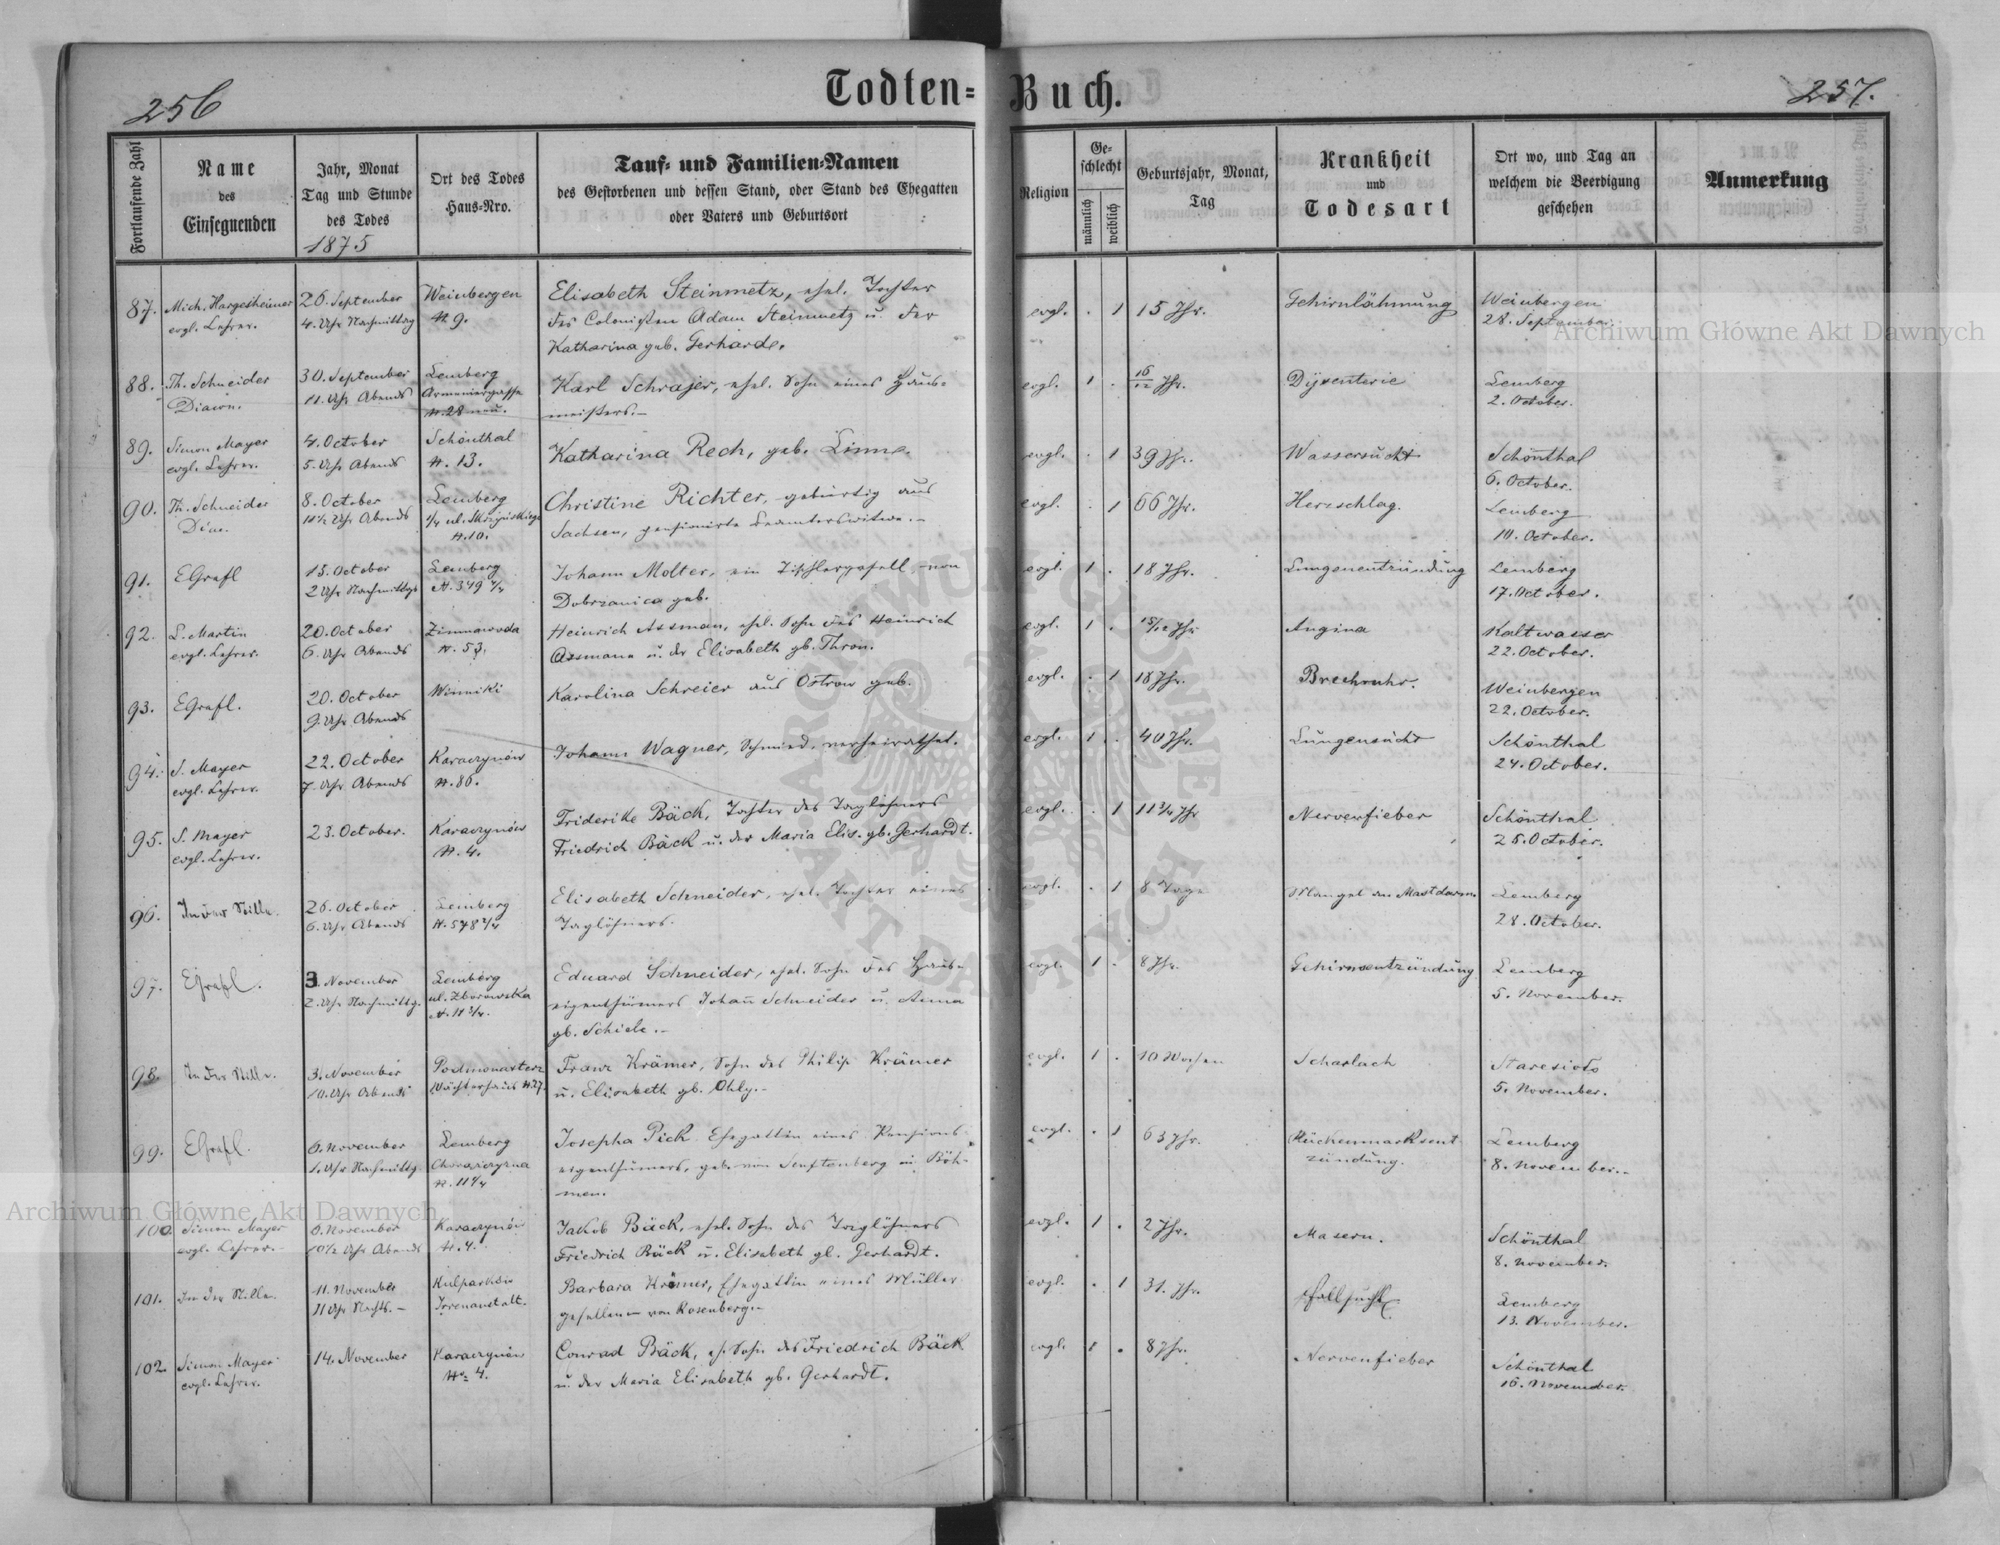 256
Todten-Buch.
257.
Fortlaufende Zahl
Name
des
Einsegnenden
Jahr, Monat
Tag und Stunde
des Todes
1875
Ort des Todes
Haus-Nro.
Tauf- und Familien-Namen
des Gestorbenen und dessen Stand, oder Stand des Ehegatten
oder Vaters und Geburtsort
Religion
Ge-
schlecht
männlich
weiblich
Geburtsjahr, Monat,
Tag
Krankheit
und
Todesart
Ort wo, und Tag an
welchem die Beerdigung
geschehen
Anmerkung
87. Mich. Hargesheimer 26. September Weinbergen Elisabeth Steinmetz, ehel. Tochter evgl. . 1 15 Jhr. Gehirnlähmung Weinbergen
evgl. Lehrer. 4. Uhr Nachmittag N. 9. des Colonisten Adam Steinmetz u. der 28. September
Katharina geb. Gerhardt.
88. Th. Schneider 30. September Lemberg Karl Schrajer, ehel. Sohn eines Haus- evgl. 1 . 16/12 Jhr. Dysenterie Lemberg
Diacon. 11. Uhr Abends Armeniergasse meisters.- 2. October.
N. 28 neu.
89. Simon Mayer 4. October Schönthal Katharina Rech, geb. Linne. evgl. . 1 39 Jhr. Wassersucht Schönthal
evgl. Lehrer. 5. Uhr Abends N. 13. 6. October.
90. Th. Schneider 8. October Lemberg Christine Richter, gebürtig aus evgl. . 1 66 Jhr. Herzschlag. Lemberg
Diac. Uhr Abends N. 10. Sachsen, pensionirte Beamterswitwe.- 10. October.
91. EGrafl 15. October Lemberg Johann Molter, ein Tischlergesell, von evgl. 1 . 18 Jhr. Lungenentzündung Lemberg
2 Uhr Nachmittgs N. 349 2/4 Dobrzanica geb. 17. October.
92. L. Martin 20. October Zimnawoda Heinrich Assman, ehel. Sohn des Heinrich evgl. 1 . 15/12 Jhr Angina Kaltwasser
evgl. Lehrer. 6. Uhr Abends N. 53. Assmann u. der Elisabeth gb. Thron. 22. October.
93. EGrafl. 20. October Winniki Karolina Schreier aus Ostrow geb. evgl. . 1 18 Jhr. Brechruhr. Weinbergen
9. Uhr Abends 22. October.
94. S. Mayer 22. October Karaczynów Johann Wagner, Schmied, verheirathet. evgl. 1 . 40 Jhr. Lungensucht Schönthal
evgl. Lehrer. 7. Uhr Abends N. 86. 24. October.
95. S. Mayer 23. October. Karaczynów Friderike Bäck, Tochter des Taglöhners evgl. . 1 11 3/4 Jhr Nervenfieber Schönthal
evgl. Lehrer. N. 4. Friedrich Bäck u. der Maria Elis. gb. Gerhardt. 25. October.
96. In der Stille. 26. October Lemberg Elisabeth Schneider, ehel. Tochter eines evgl. . 1 8 Tage Mangel am Mastdarm. Lemberg
6. Uhr Abends N. 578 2/4 Taglöhners. 28. October.
97. EGrafl. 3. November Lemberg Eduard Schneider, ehel. Sohn des Haus- evgl. 1 . 8 Jhr. Gehirnentzündung Lemberg
2. Uhr Nachmittg. ul. Zborowska eigenthümers Johann Schneider u. Anna 5. November.
N. 11 3/4. gb. Schiele.-
98. In der Stille. 3. November Podmonasterz Franz Krämer, Sohn des Philip Krämer evgl. 1 . 10 Wochen Scharlach Staresioło
10. Uhr Abends Wächterhaus N 27. u. Elisabeth gb. Ohly.- 5. November.
99. EGrafl. 6. November Lemberg Josepha Pick Ehegattin eines Pensions- evgl. . 1 63 Jhr. Rückenmarksent- Lemberg
1. Uhr Nachmittg. Chorążczyzna eigenthümers, geb. von Senftenberg in Böh- zündung. 8. November.-
N. 11 2/4 men.
100. Simon Mayer 6. November Karaczynów Jakob Bäck, ehel. Sohn des Taglöhners evgl. 1 . 2 Jhr. Masern. Schönthal
evgl. Lehrer.- 10 1/2 Uhr Abends N. 4. Friedrich Bäck u. Elisabeth gb. Gerhardt. 8. November.
101. In der Stille. 11. November Kulparków Barbara Krämer, Ehegattin eines Müller- evgl. . 1 31. Jhr. Fallsucht Lemberg
11 Uhr Nachts.- Irrenanstalt. gesellen von Rosenberg.- 13. November.
102. Simon Mayer 14. November Karaczynów Conrad Bäck, eh. Sohn des Friedrich Bäck evgl. 1 . 8 Jhr. Nervenfieber Schönthal
evgl. Lehrer. N= 4. u. der Maria Elisabeth gb. Gerhardt. 16. November.
Archiwum Główne Akt Dawnych
Archiwum Główne Akt Dawnych
ARCHIWUM GŁÓWNE AKT DAWNYCH